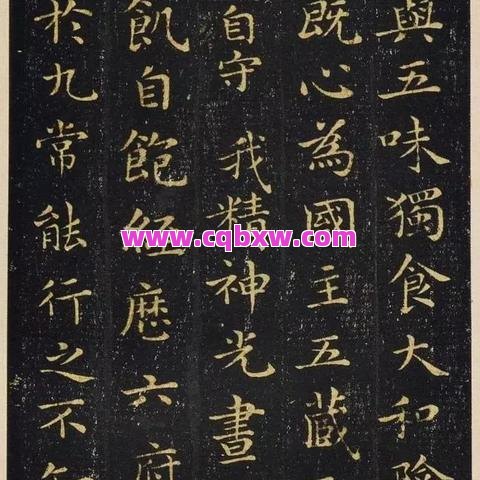 與五味獨食大和陰
既心為國主五藏
自守我精神光晝
飢自飽經歷六府
扵九常能行之不
www.cqbxw.com